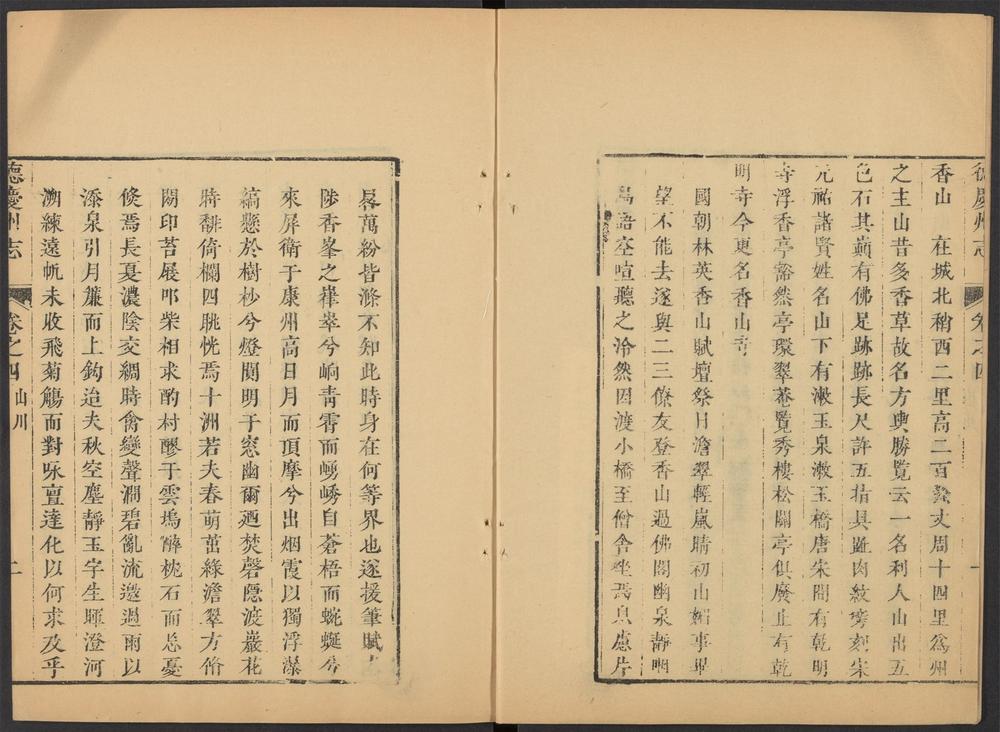 德慶州志 卷之四 一
香山 在城北稍西二里高二百餘丈周十四里爲州
之主山昔多香草故名方輿勝覽云一名利人山出五
色石其巔有佛足跡跡長尺許五指具趾肉紋旁刻宋
元祐諸賢姓名山下有漱玉泉漱玉橋唐宋間有乾明
寺浮香亭豁然亭環翠菴覽秀樓松關亭俱廢止有乾
明寺今更名香山寺
國朝林英香山賦壇祭日澹翠輕嵐晴初山媚事畢
望不能去遂與二三僚友登香山過佛閣幽泉靜咽
鳥語空喧聽之泠然因渡小橋至僧舍坐焉息慮片
晷萬紛皆滌不知此時身在何等界也遂援筆賦
陟香峯之嵂崒兮峋青霄而嵎嵴自蒼梧而蜿蜒兮
來屏衛于康州高日月而頂摩兮出烟霞以獨浮瀑
縞懸於樹杪兮燈閴明于窓幽爾廼焚磬隱渡巖花
時馡倚欄四眺恍焉十洲若夫春萌茁綠澹翠方脩
閟印苔屐叩柴相求酌村醪于雲塢醉枕石而忘憂
倏焉長夏濃陰交稠時禽變聲澗碧亂流邀過雨以
添泉引月簾而上鈎迨夫秋空塵靜玉宇生暉澄河
溯練遠帆未收飛菊觴而對咏亶達化以何求及乎
德慶州志 卷之四 山川 二